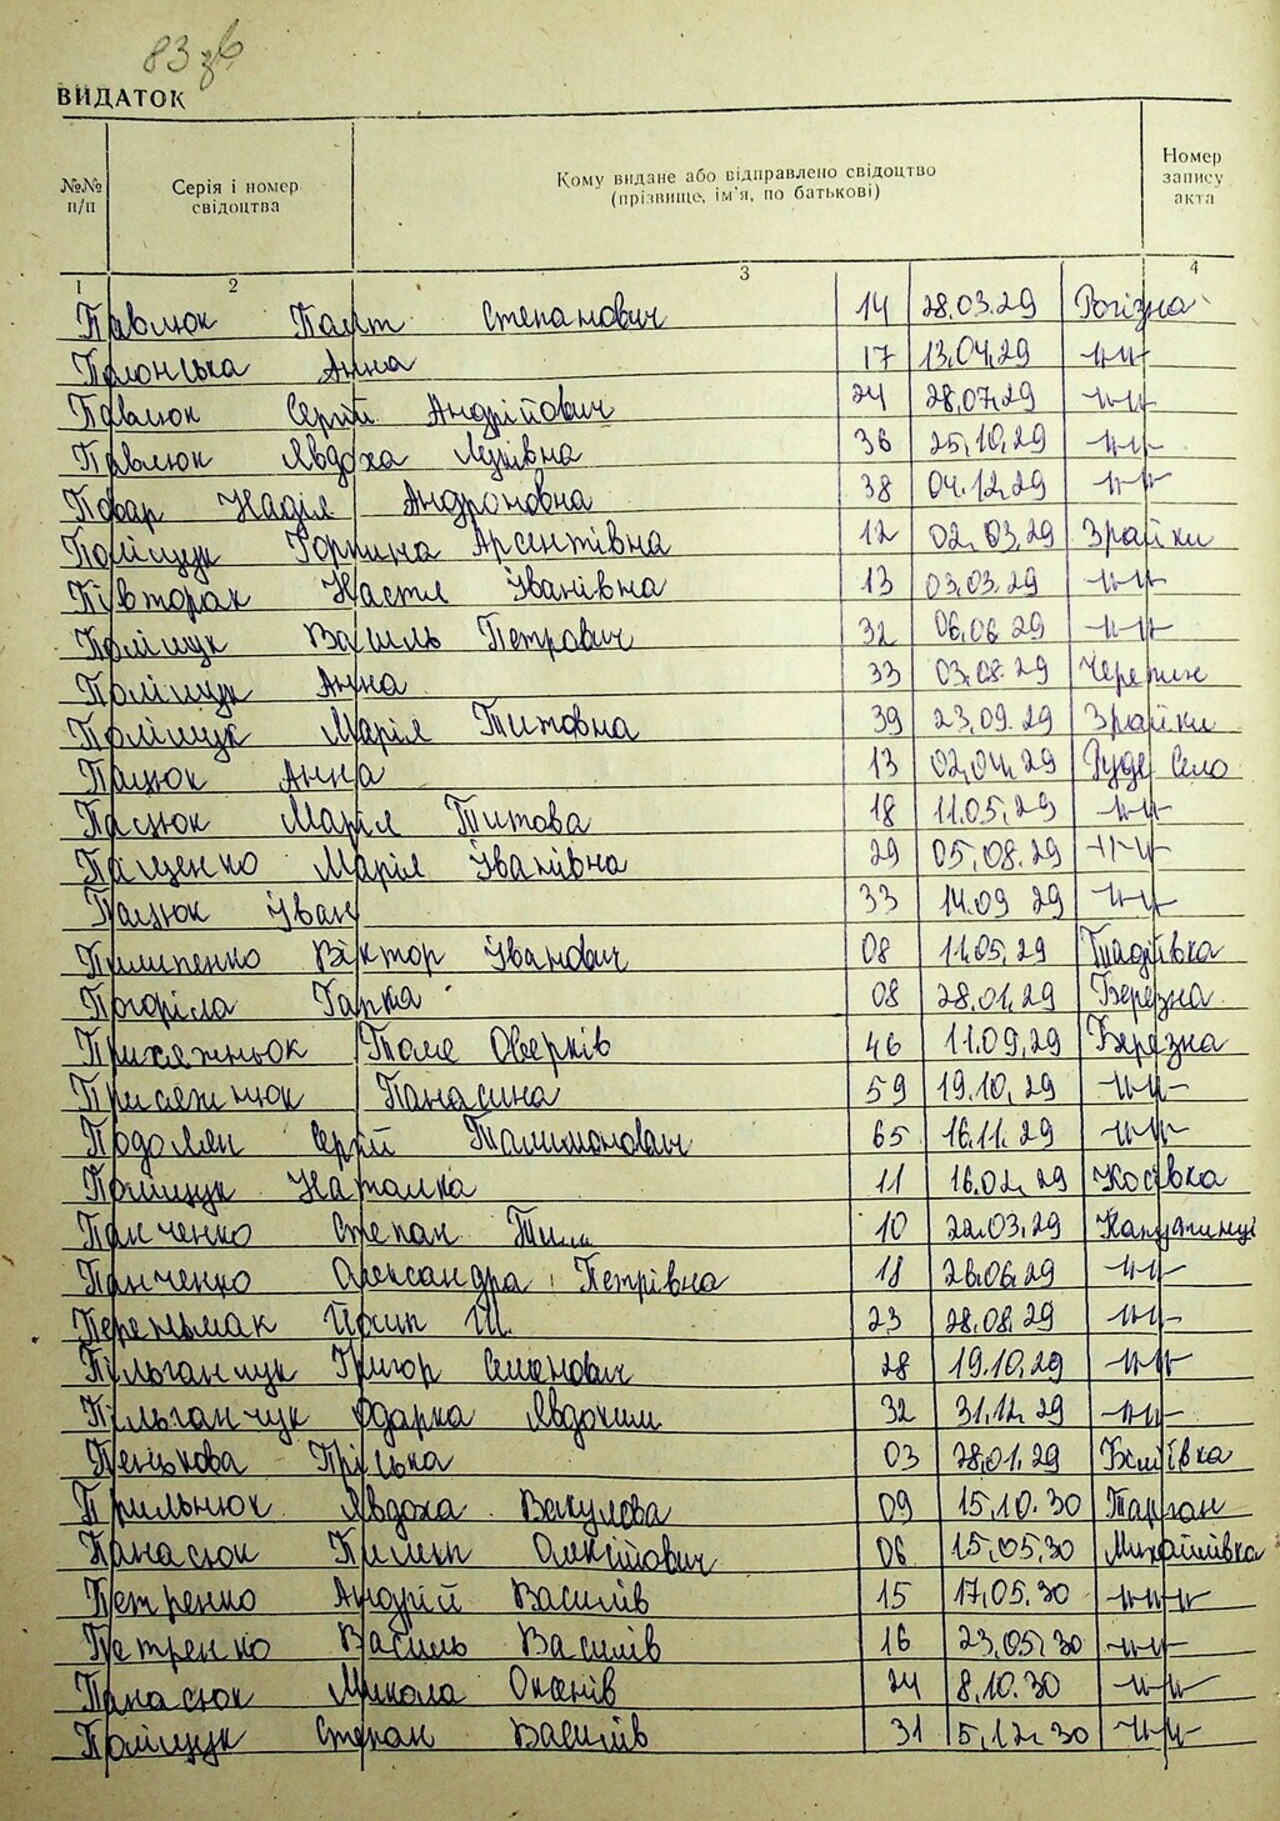 83 зв
ВИДАТОК
№№ п/п
Серія і номер свідоцтва
Кому видане або відправлено свідоцтво (прізвище, ім'я, по батькові)
Номер запису акта
1 2 3 4
Павлюк Степанович 14 28.03.29 Рогізна
Полонська Анна 17 13.04.29 -"-"-
Павлюк Сергій Андрійович 24 28.07.29 -"-"-
Павлюк Явдоха Луківна 36 25.10.29 -"-"-
Повар Надія Андроновна 38 04.12.29 -"-"-
Поліщук Горпина Арсентівна 12 02.03.29 Зрайки
Півторак Настя Іванівна 13 03.03.29 -"-"-
Поліщук Василь Петрович 32 06.06.29 -"-"-
Поліщук Анна 33 03.08.29 Черепин
Поліщук Марія Титовна 39 23.09.29 Зрайки
Пацюк Анна 13 02.04.29 Руде Село
Пацюк Марія Титова 18 11.05.29 -"-"-
Пащенко Марія Іванівна 29 05.08.29 -"-"-
Пацюк Іван 33 14.09 29 -"-"-
Пилипенко Віктор Іванович 08 11.05.29 Тадіївка
Погоріла Гапка 08 28.01.29 Березна
Присяжньок Тома Оверків 46 11.09.29 Березна
Присяжнюк Панасина 59 19.10.29 -"-"-
Подолян Сергій Талимонович 65 16.11.29 -"-"-
Поліщук Наталка 11 16.02.29 Косівка
Панченко Степан Тим 10 22.03.29 Капустинці
Панченко Олександра Петрівна 18 26.06.29 -"-"-
Йосип Ш. 23 28.08.29 -"-"-
Пільганчук Григор Семенович 28 19.10.29 -"-"-
Пільганчук Одарка Явдохим 32 31.12.29 -"-"-
Пенькова Пріська 03 28.01.29 Біліївка
Прильнюк Явдоха Вакулова 09 15.10.30 Тарган
Панасюк Пилип Олексійович 06 15.05.30 Михайлівка
Петренко Андрій Василів 15 17.05.30 -"-"-
Петренко Василь Василів 16 23.05.30 -"-"-
Панасюк Микола Оксенів 24 8.10.30 -"-"-
Поліщук Степан Василів 31 5.12.30 -"-"-